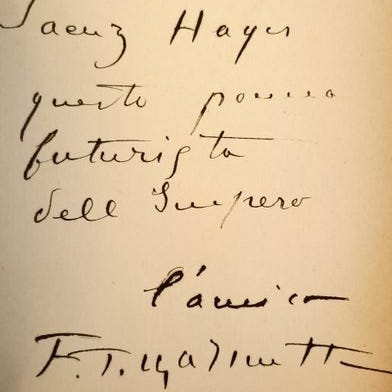 Saenz Hayes
questo poema
futurista
dell Impero
l'amico
F. T. Marinetti